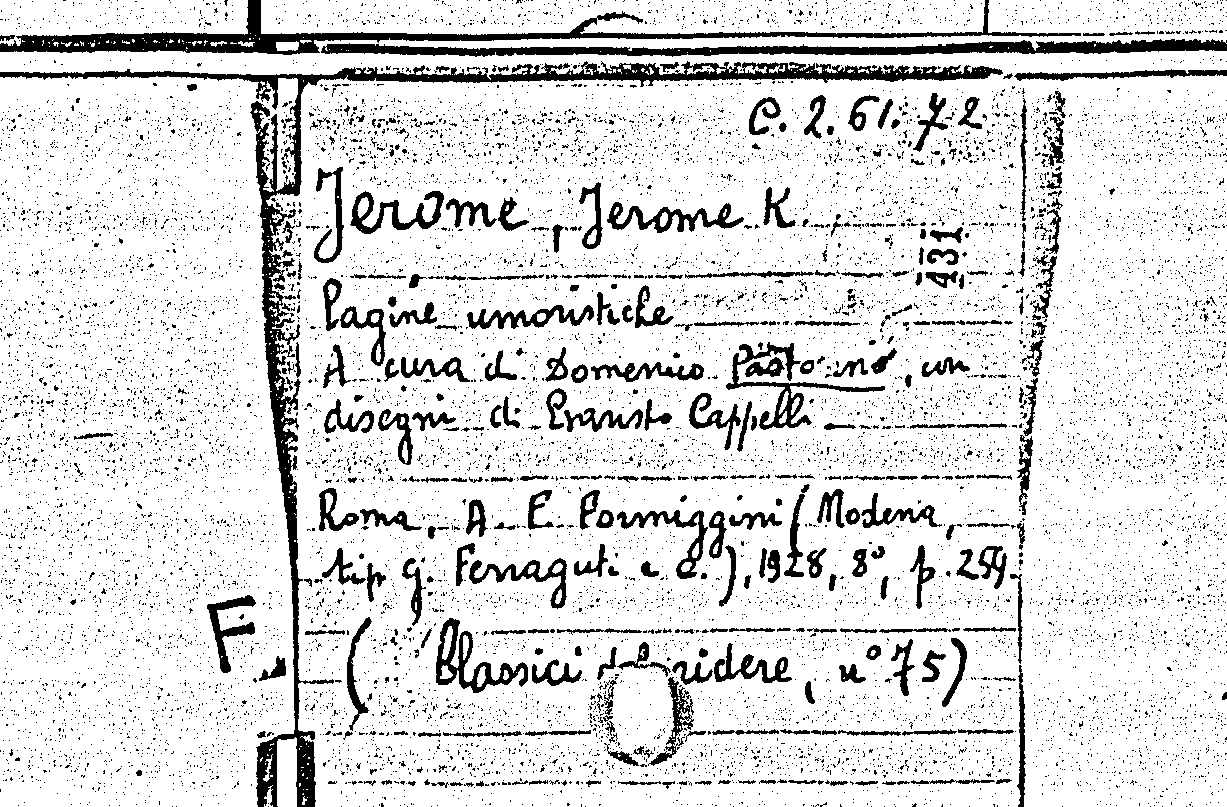 C. 2. 61. 72
Jerome, Jerome K.
431
Pagine umoristiche
A cura di Domenico, con
disegni di Evaristo Cappelli
Roma, A. F. Formiggini (Modena,
tip G. Ferraguti e C.), 1928, 8°, p. 254.
F.
(Classici del ridere, n° 75)